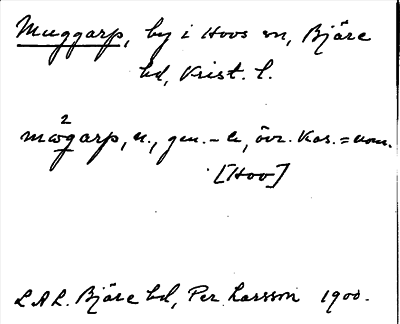 Muggarp, by i Hovs sn, Bjäre
hd, Krist. l.
gen. -s, övr. kas. = nom.
[Hov]
LAL. Bjäre hd, Per Larsson 1900.